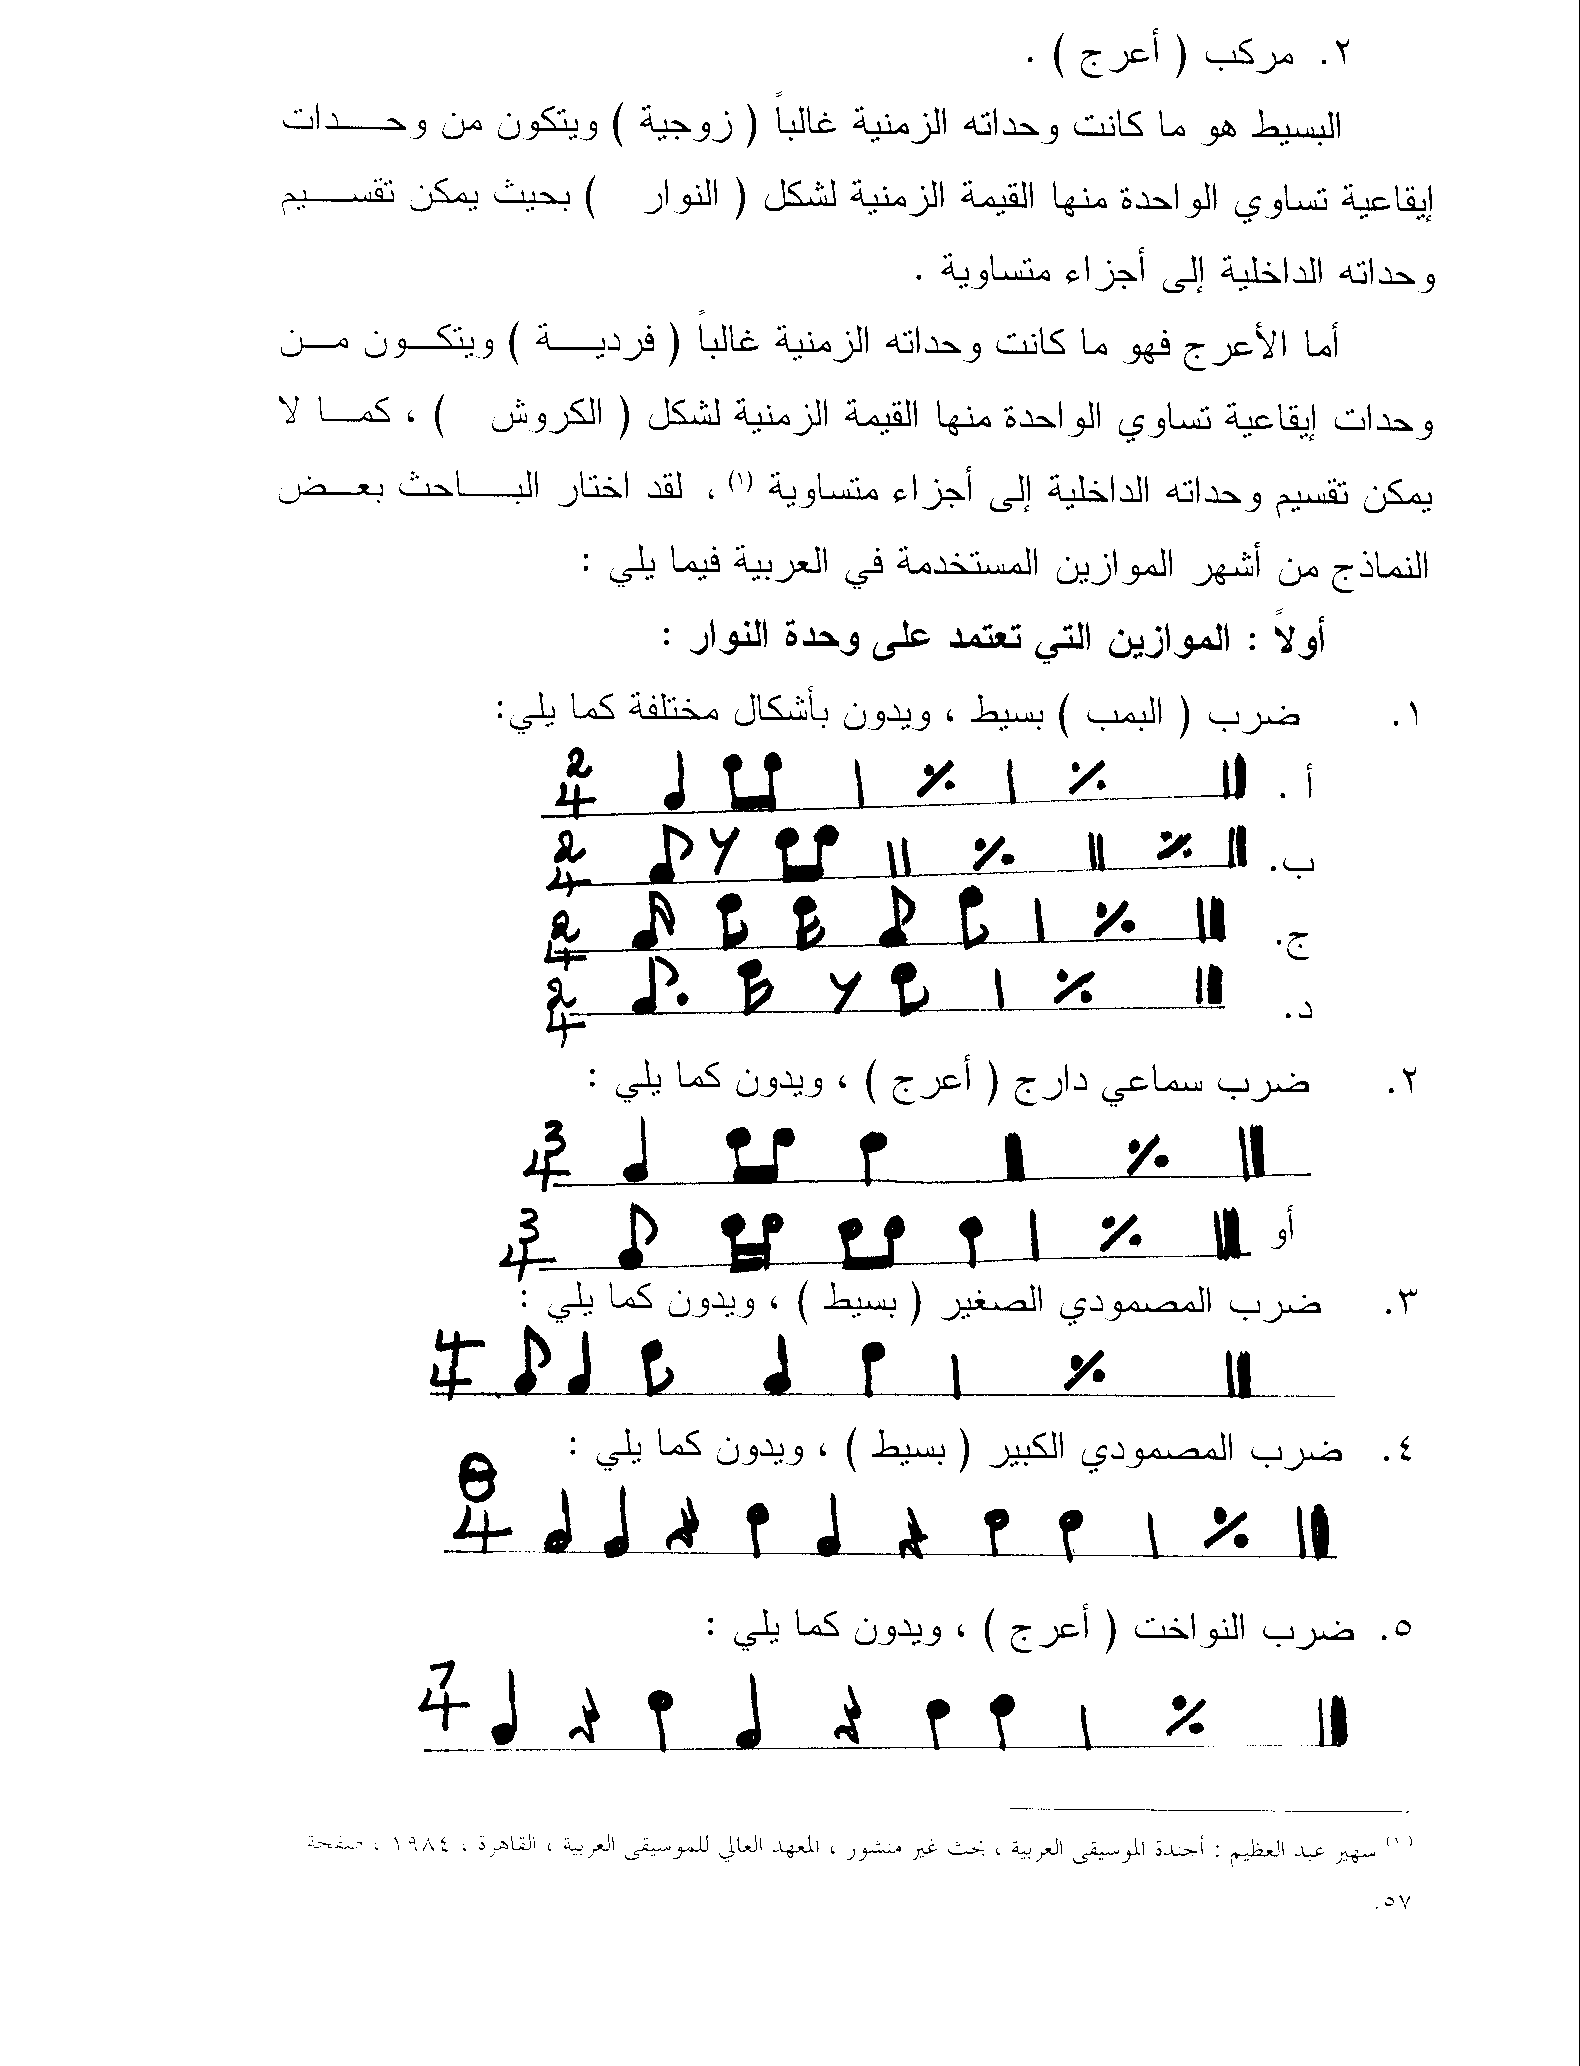 ٢. مركب ( أعرج ) .
البسيط هو ما كانت وحداته الزمنية غالباً ( زوجية ) ويتكون من وحـــدات
إيقاعية تساوي الواحدة منها القيمة الزمنية لشكل ( النوار ) بحيث يمكن تقســـيم
وحداته الداخلية إلى أجزاء متساوية .
أما الأعرج فهو ما كانت وحداته الزمنية غالباً ( فرديـــة ) ويتكـــون مـــن
وحدات إيقاعية تساوي الواحدة منها القيمة الزمنية لشكل ( الكروش ) ، كمـــا لا
يمكن تقسيم وحداته الداخلية إلى أجزاء متساوية (١) ، لقد اختار البـــاحث بعـــض
النماذج من أشهر الموازين المستخدمة في العربية فيما يلي :
أولاً : الموازين التي تعتمد على وحدة النوار :
١. ضرب ( البمب ) بسيط ، ويدون بأشكال مختلفة كما يلي:
أ . 2/4
ب. 2/4
ج. 2/4
د. 2/4
٢. ضرب سماعي دارج ( أعرج ) ، ويدون كما يلي :
3/4
أو 3/4
٣. ضرب المصمودي الصغير ( بسيط ) ، ويدون كما يلي :
4/4
٤. ضرب المصمودي الكبير ( بسيط ) ، ويدون كما يلي :
8/4
٥. ضرب النواخت ( أعرج ) ، ويدون كما يلي :
7/4
(١) سهير عبد العظيم : أجندة الموسيقى العربية ، بحث غير منشور ، المعهد العالي للموسيقى العربية ، القاهرة ، ١٩٨٤ ، صفحة
٥٧.